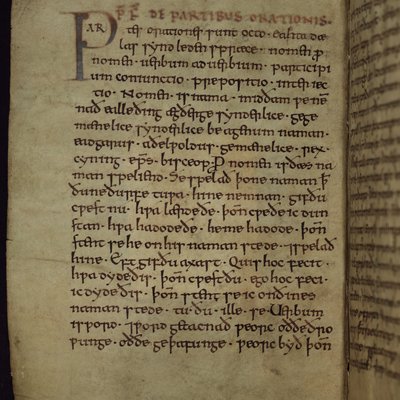 PRF̄ DE PARTIBUS ORATIONIS.
PARtes orationis sunt octo · eahta dæ
las synd leden spræce · Nomen · pro
nomen · uerbum · aduerbium · particip
ium · coniunctio · prepositio · interiec
tio · Nomen is nama · mid ðam pe nem
nað ealle ðing ægðer ge synderlice · ge ge
mænelice · synderlice be agenum naman ·
eadgarus · aðelpoldus · gemænelice · rex ·
cyning · eps̄ · bisceop · Pronomen is ðæs na
man speliend · Se spelað þone naman ꝥ
ðu ne ðurfe tupa hine nemnan · gif ðu
cpest nu · hpa lærde ðe · þōn cpeðe ic dun
stan · hpa hadode ðe · he me hadode · þōn
stent se he on his naman stede · ⁊ spelað
hine · Eft gif ðu axast · Quis hoc fecit ·
hpa dyde ðis · þōn cpest ðu · ego hoc feci ·
ic dyde ðis · þōn stent se ic on ðines
naman stede · tu · ðu · ille · se · Uerbum
is pord · ⁊ pord getacnað peorc oððe ðro
punge · oððe geþafunge · peorc byð þōn